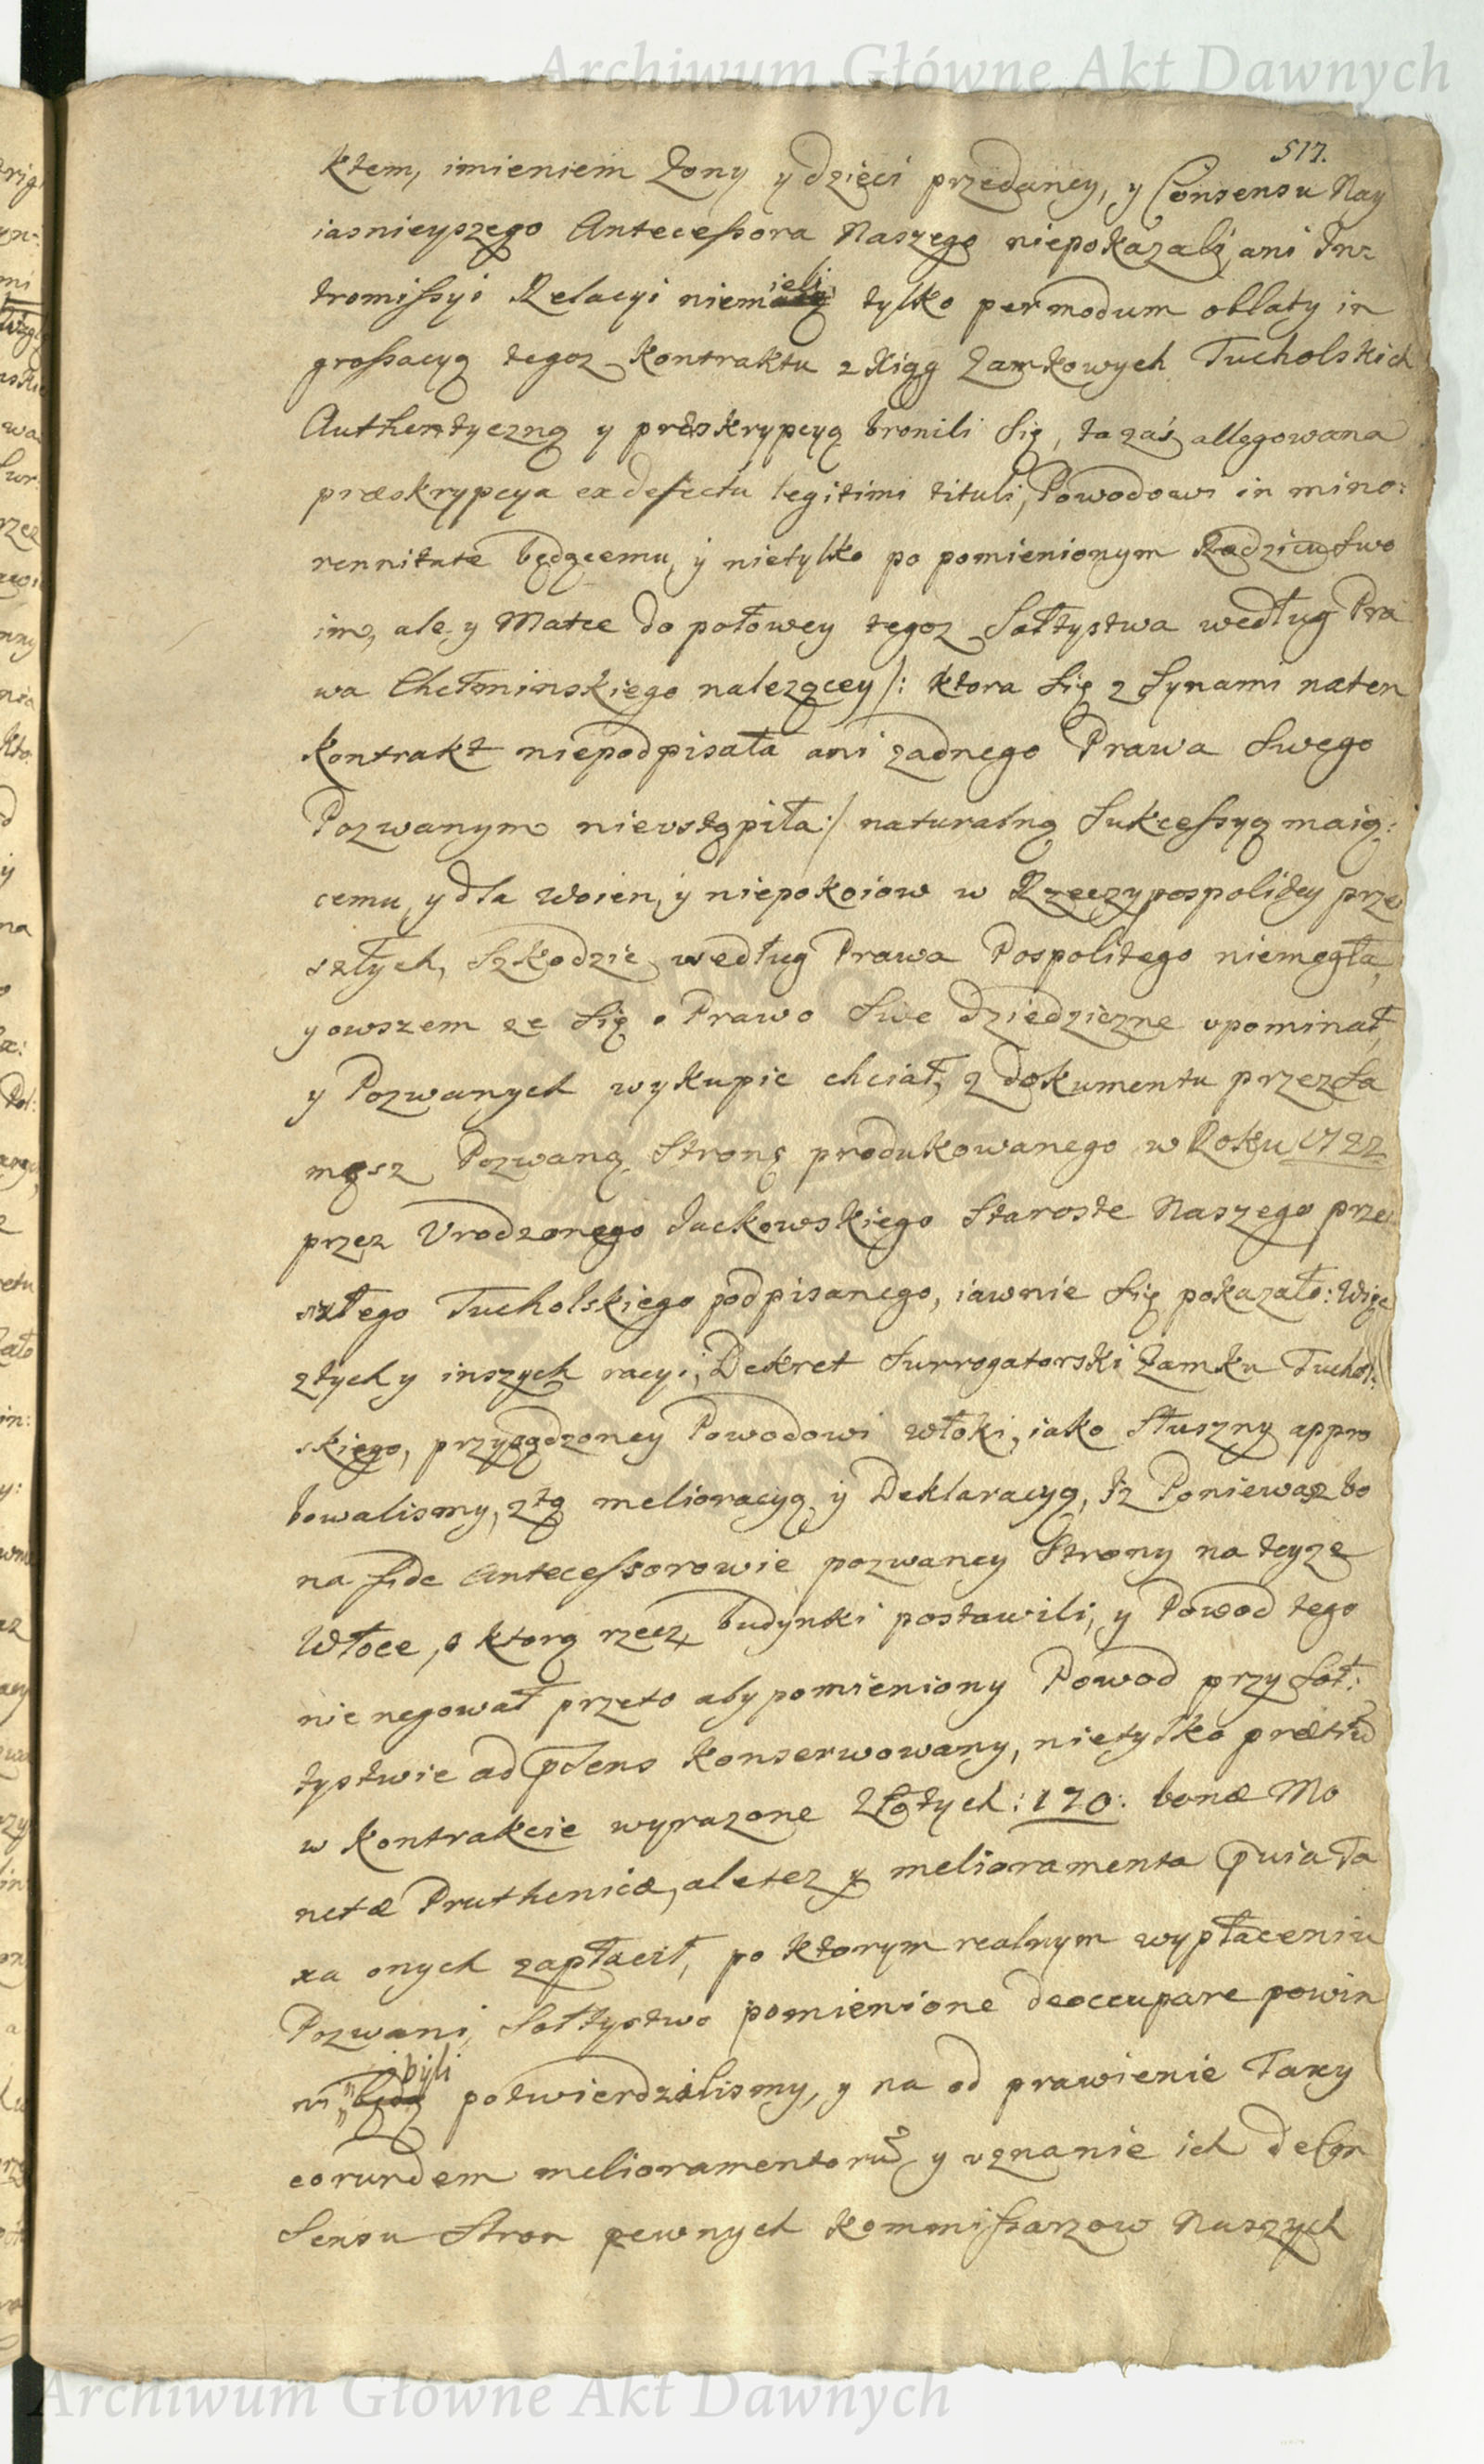 Archiwum Główne Akt Dawnych
517.
ktem, imieniem Zony y dzieci przedaney, y Consensu Nay
iasnieyszego Antecessora Naszego niepokazali, ani In=
tromissyi Relacyi niemieli tylko per modum oblaty in
grossacyą tegoz Kontraktu z Xiąg Zamkowych Tucholskich
Authentyczną y præskrypcyą bronili się, ta zaś allegowana
præskrypcya ex defectu legitimi tituli, Powodowi in mino:
rennitate będącemu, y nietylko po pomienionym Rodzicu swo
im, ale y Matce do połowey tegoz Sołtystwa według Pra
wa Chełminskiego nalezącey /: ktora się z Synami na ten
kontrakt niepodpisała ani zadnego Prawa swego
Pozwanym nieustąpiła :/ naturalną Sukcessyą maią:
cemu, y dla woien, y niepokoiow w Rzeczypospolitey prze
szłych, szkodzić według Prawa Pospolitego niemogła,
y owszem ze się o Prawo swe dziedziczne upominał,
y Pozwanych wykupic chciał, z dokumentu przez ta
męsz Pozwaną Stronę produkowanego w Roku 1722
przez Urodzonego Jackowskiego Starostę Naszego prze
szłego Tucholskiego podpisanego, iawnie się pokazało: Więc
z tych y inszych racyi, Dekret Surrogatorski Zamku Tuchol:
skiego, przysądzoney Powodowi włoki, iako słuszny appro
bowalismy, z tą melioracyą y Deklaracyą, Iz Poniewasz bo
na fide Antecessorowie pozwaney Strony na teyze
Włoce, o ktorą rzecz, budynki postawili, y Powod tego
nie negował przeto aby pomieniony Powod przy Soł:
tystwie ad præsens konserwowany, nietylko
w kontrakcie wyrazone Złotych: 170: bonæ Mo
netæ Pruthenicæ, ale tez y melioramenta Quia Ta
xa onych zapłacił, po ktorym realnym wypłaceniu
Pozwani, Sołtystwo pomienione deoccupare powin
ni byli potwierdzilismy, y na od prawienie Taxy
eorundem melioramentorum y uznanie ich de Con
sensu Stron pewnych Kommissarzow Naszych
Archiwum Główne Akt Dawnych